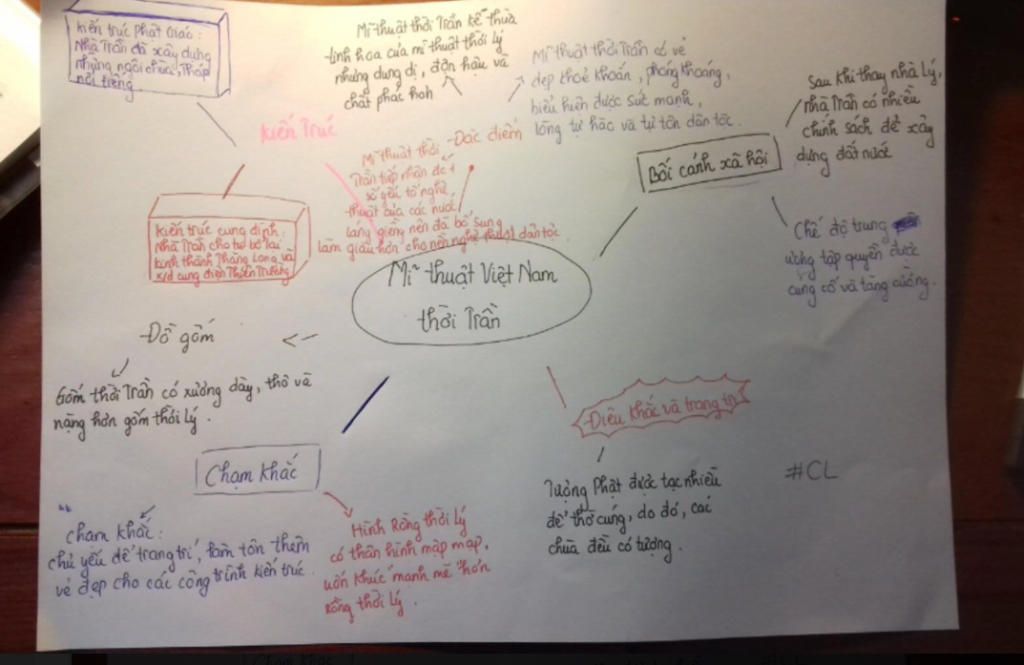 Kiến trúc Phật Giáo:
Nhà Trần đã xây dựng
những ngôi chùa, tháp
nổi tiếng
Mĩ thuật thời Trần kế thừa
tinh hoa của mĩ thuật thời lý
nhưng dung dị, đôn hâu và
chất phác hơn
Mĩ thuật thời Trần có vẻ
đẹp khoẻ khoắn, phóng khoáng,
biểu hiện được sức mạnh,
lòng tự hào và tự tôn dân tộc.
Sau khi thay nhà Lý,
nhà Trần có nhiều
chính sách để xây
dựng đất nước
Kiến Trúc
Đặc điểm
Mĩ thuật thời
Trần tiếp nhận
số yếu tố nghệ
thuật của các nước
láng giềng nên đã bổ sung
làm giàu hơn cho nền nghệ thuật dân tộc
Bối cảnh xã hội
Chế độ trung
ương tập quyền được
củng cố và tăng cường.
Kiến trúc cung định:
Nhà Trần cho tu bổ lại
kinh thành Thăng Long và
x/d cung điện Thiên Trường
Mĩ thuật Việt Nam
thời Trần
Đồ gốm
Gốm thời Trần có xương dày, thô và
nặng hơn gốm thời Lý.
Điêu khắc và trang trí
Tượng Phật được tạc nhiều
để thờ cúng, do đó, các
chùa đều có tượng.
#CL
Chạm khắc
Chạm khắc:
chủ yếu để trang trí, làm tôn thêm
vẻ đẹp cho các công trình kiến trúc.
Hình Rồng thời lý
có thân hình mập mạp,
uốn khúc mạnh mẽ hơn
Rồng thời Lý.